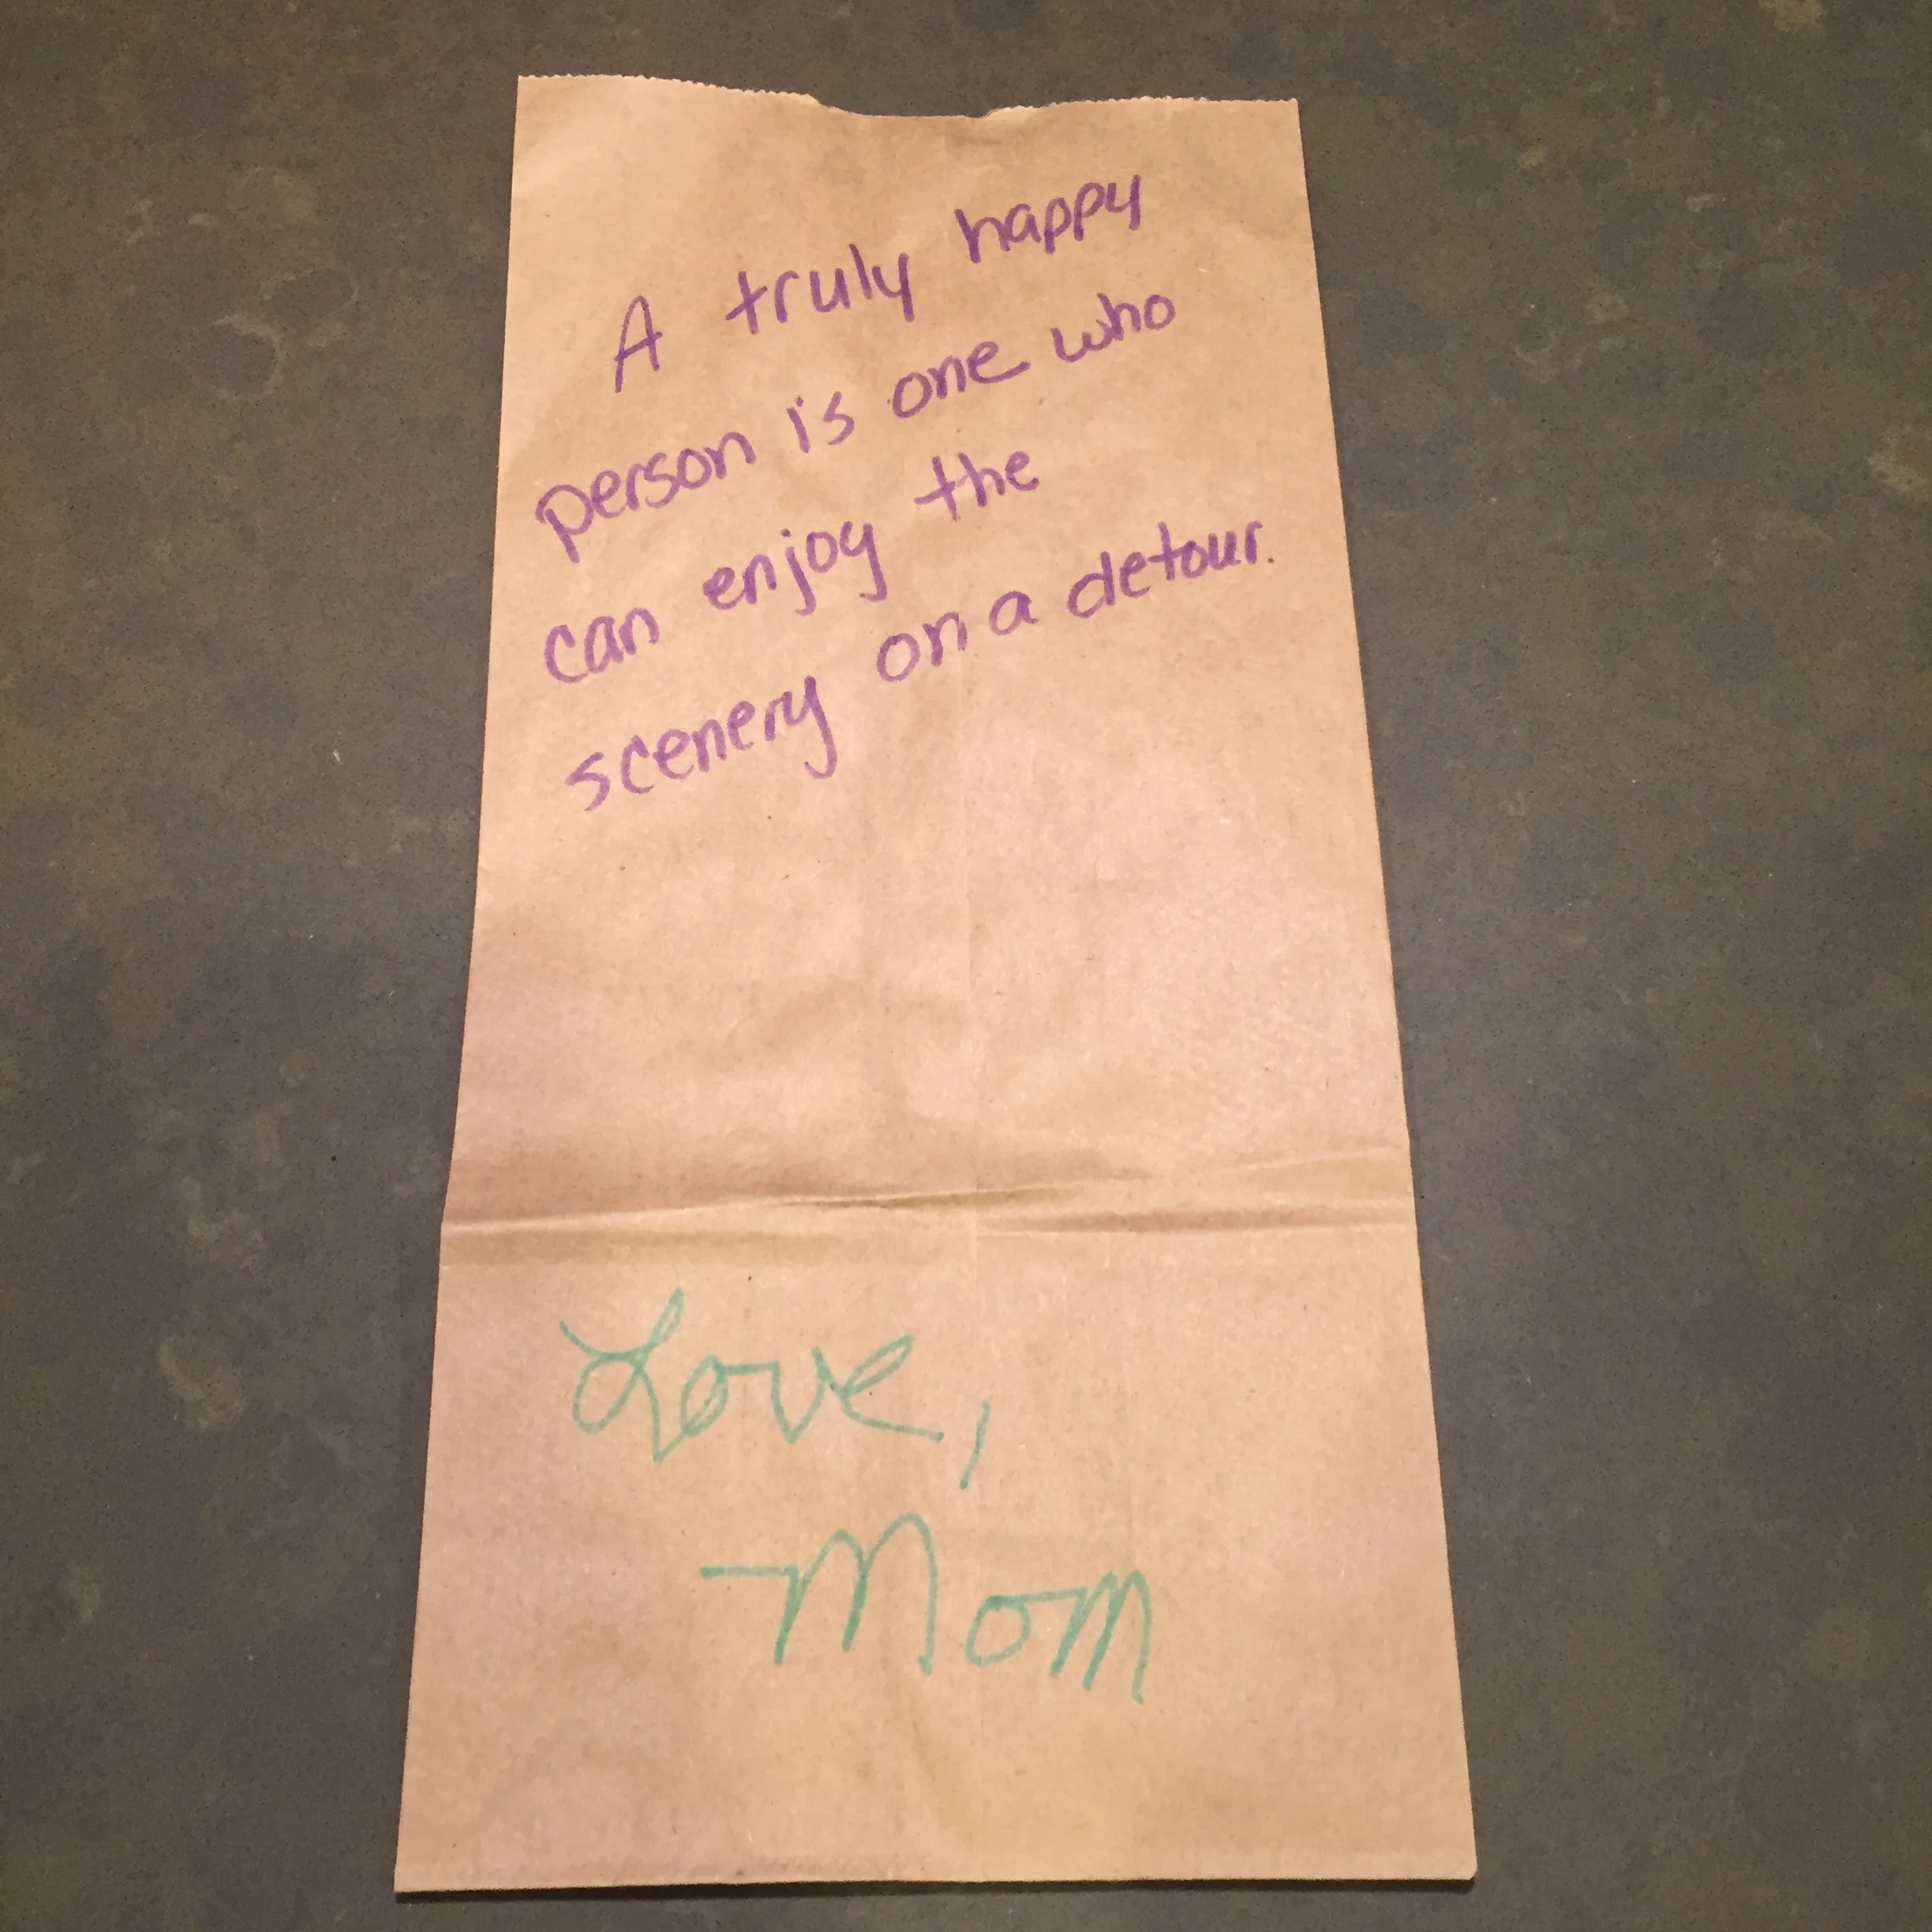 A truly happy
person is one who
can enjoy the
scenery on a detour.
Love,
Mom